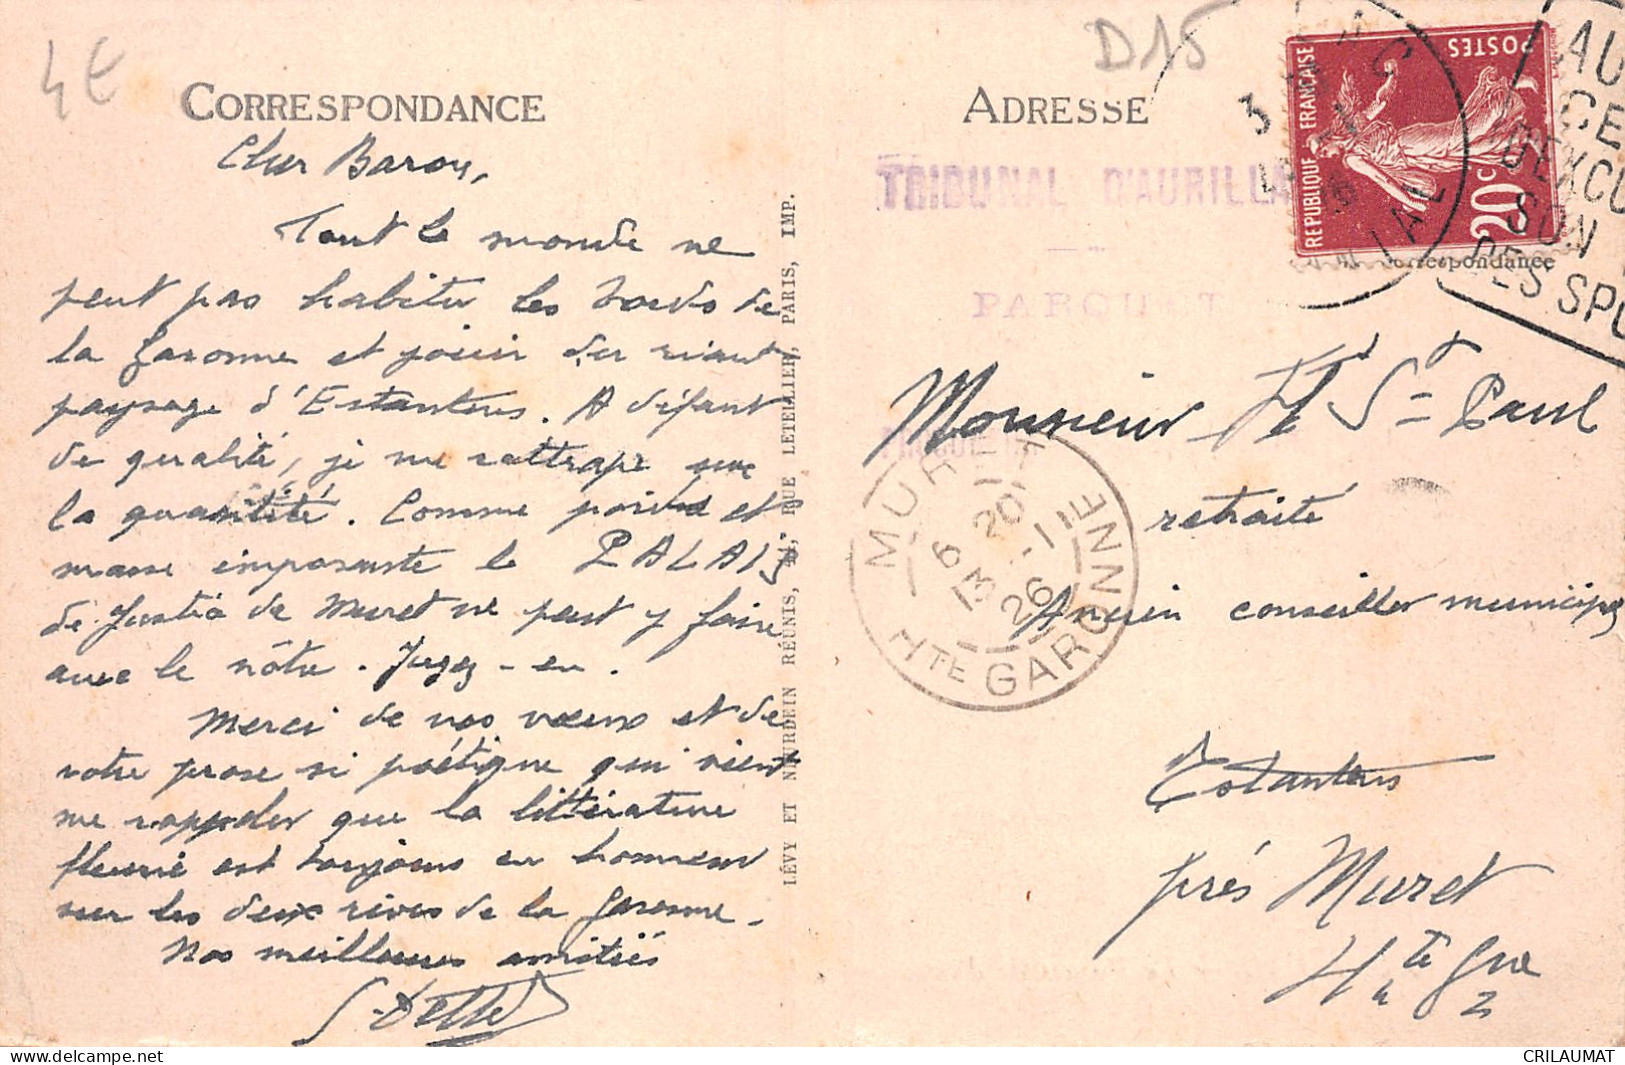 4€
D15
CORRESPONDANCE
Cher Baron,
Tout le monde ne
peut pas habiter les bords de
la Garonne et jouir du riant
paysage d'Estantens. A défaut
de qualité, je me rattrape sur
la quantité. Comme poids et
masse imposante le PALAIS
de Justice de Muret ne peut y faire
avec le nôtre. Jugez-en.
Merci de vos vœux et de
votre prose si poétique qui vient
me rappeler que la littérature
fleurie est toujours en honneur
sur les deux rives de la Garonne.
Nos meilleures amitiés
LÉVY ET NEURDEIN RÉUNIS, 44, RUE LETELLIER, PARIS, IMP.
ADRESSE
TRIBUNAL D'AURILLA
PARQUET
POSTES
RÉPUBLIQUE FRANÇAISE
20c
AU
CE
D'EXCU
SON
DES SPO
orrespondance
Monsieur H St Paul
retraité
Ancien conseiller municipal
Estantens
près Muret
Hte Gne
MURET
20
6
13 -1
26
HTE GARONNE
CRILAUMAT